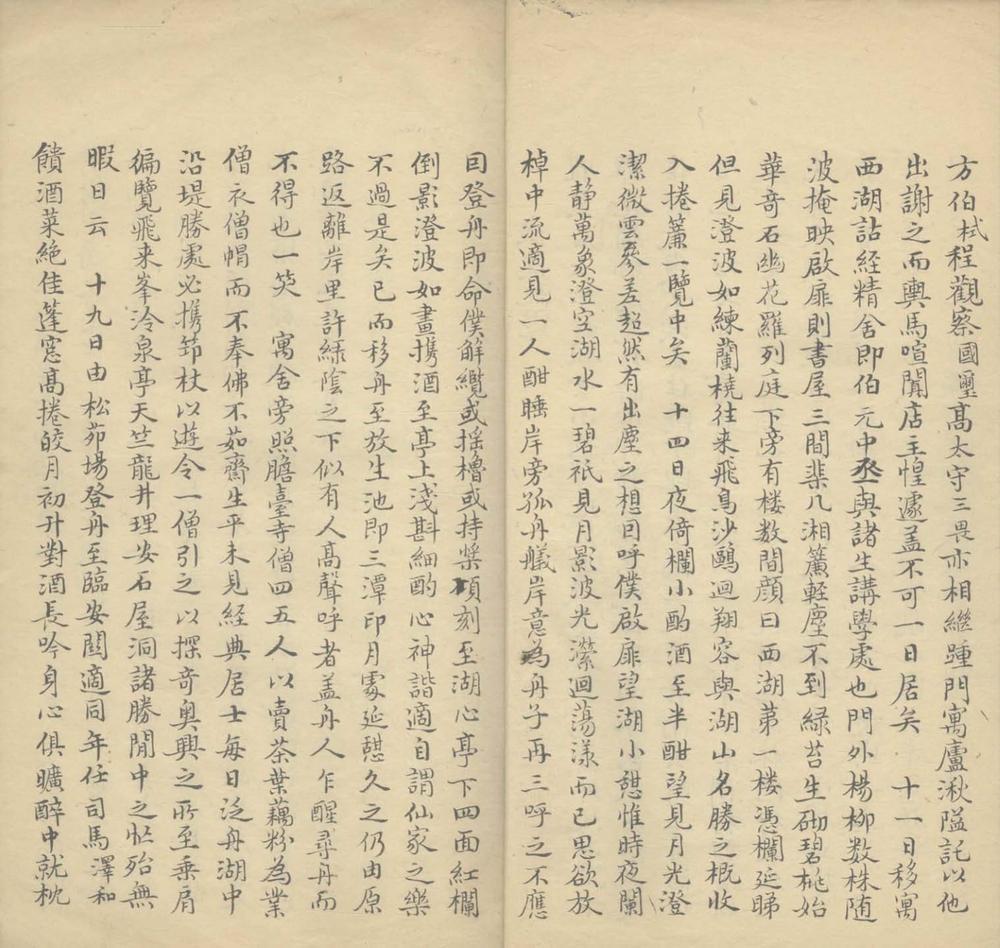 方伯栻程觀察國璽高太守三畏亦相繼踵門寓廬湫隘託以他
出謝之而輿馬喧闐店主惶遽盖不可一日居矣　十一日移寓
西湖詁經精舍即伯元中丞與諸生講學處也門外楊柳数株随
波掩映啟扉則書屋三間棐几湘簾軽塵不到緑苔生砌碧桃始
華奇石幽花羅列庭下旁有楼数間顔曰西湖苐一楼憑欄延睇
但見澄波如練蘭橈往来飛鳥沙鷗迴翔容與湖山名勝之概收
入捲簾一覽中矣　十四日夜倚欄小酌酒至半酣望見月光澄
潔微雲參差超然有出塵之想囙呼僕啟扉望湖小憩惟時夜闌
人静萬象澄空湖水一碧祇見月影波光瀠迴蕩漾而已思欲放
棹中流適見一人酣睡岸旁孤舟艤岸意為舟子再三呼之不應
囙登舟即命僕解纜或揺櫓或持槳頃刻至湖心亭下四面紅欄
倒影澄波如畫攜酒至亭上淺斟細酌心神諧適自謂仙家之樂
不過是矣已而移舟至放生池即三潭印月處延憩久之仍由原
路返離岸里許緑陰之下似有人髙聲呼者盖舟人乍醒尋舟而
不得也一笑　寓舍旁照膽臺寺僧四五人以賣茶葉藕粉為業
僧衣僧帽而不奉佛不茹齋生平未見経典居士每日泛舟湖中
沿堤勝處必攜笻杖以逰令一僧引之以探奇奥興之所至乗肩
徧覽飛来峯冷泉亭天竺龍井理安石屋洞諸勝閒中之忙殆無
暇日云　十九日由松茆場登舟至臨安関適同年任司馬澤和
饋酒菜絶佳蓬窓髙捲皎月初升對酒長吟身心俱曠醉中就枕